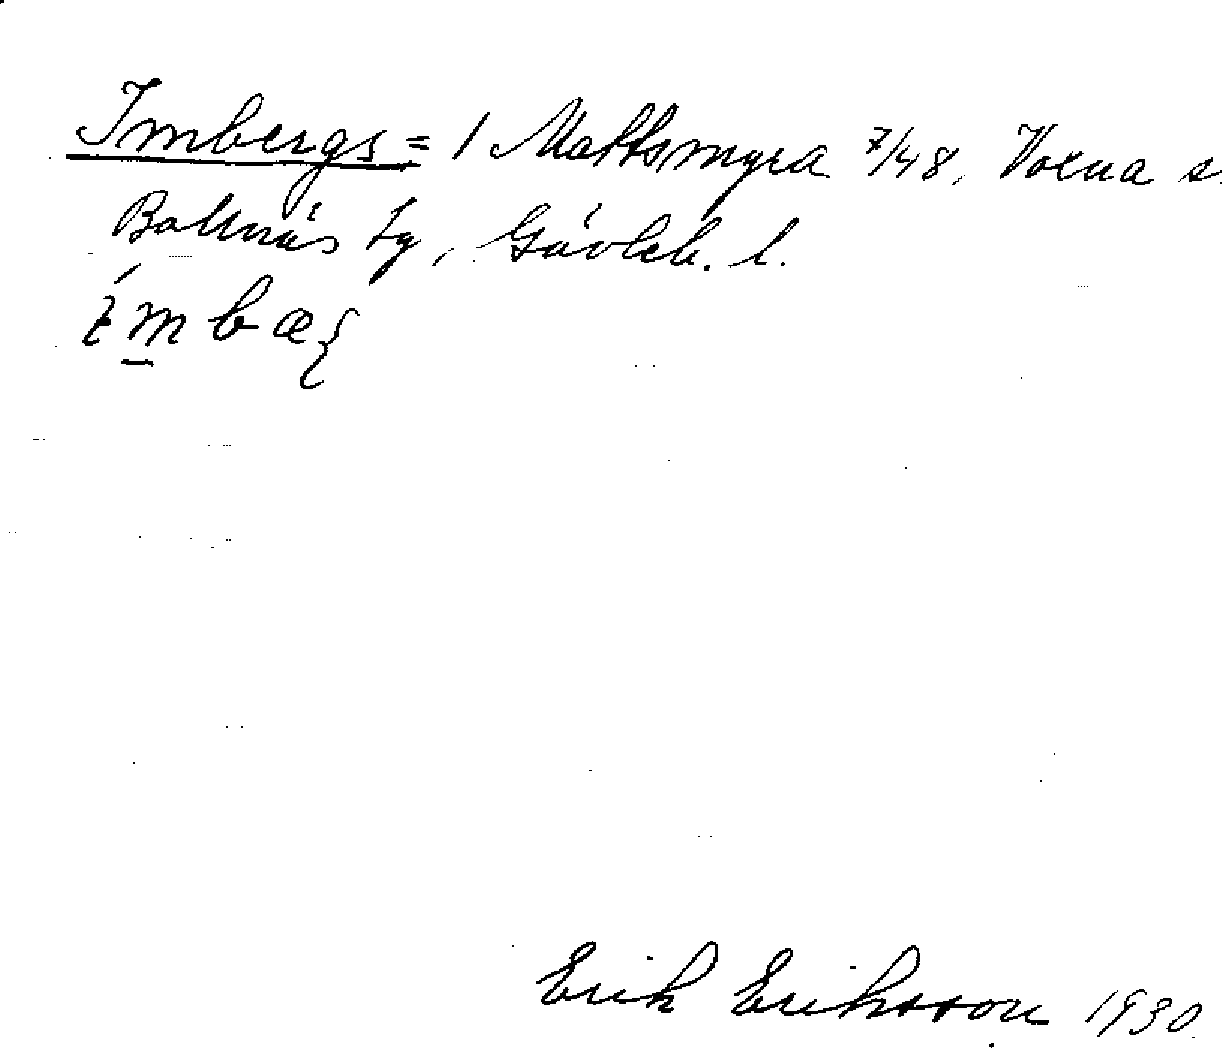 Imbergs = / Mattsmyra 7/48, Voxna s.
Bollnäs tg, Gävleb. l.
Erik Eriksson 1930